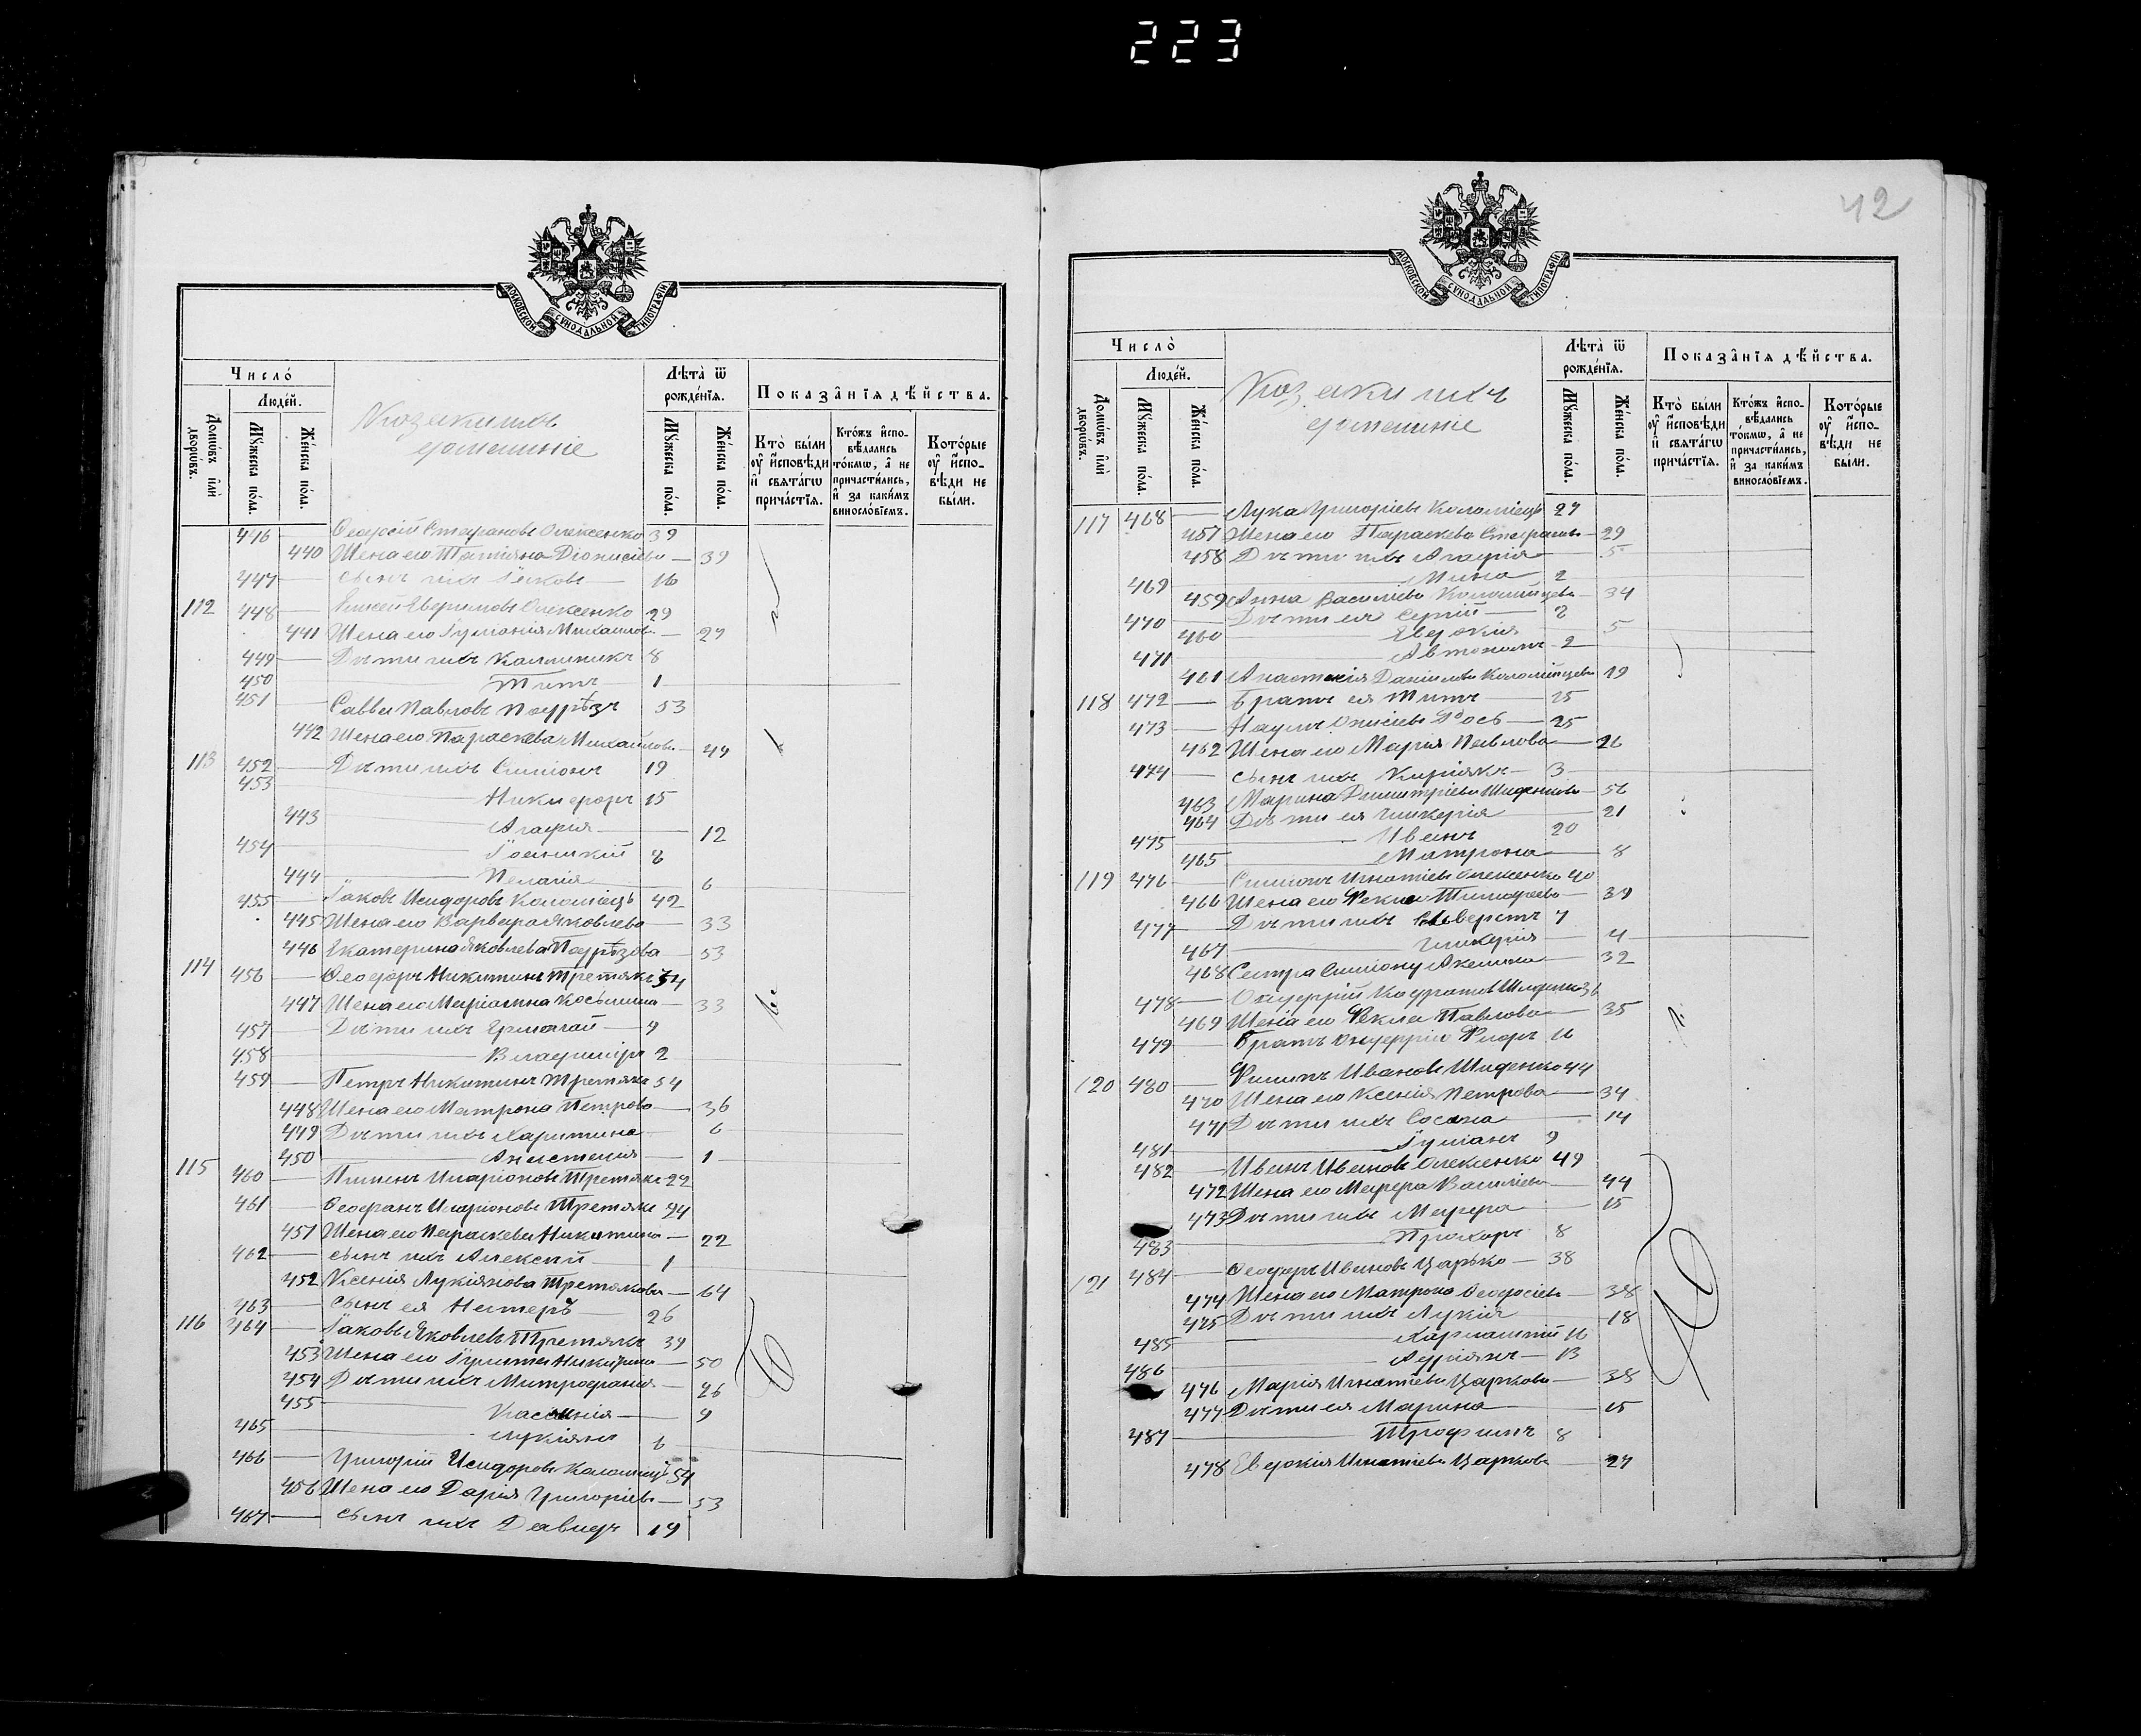 223
МОСКОВСКОЙ СУНОДАЛЬНОЙ ТИПОГРАФІИ
Число̀
Людє́й.
Домѡ́въ и҆лѝ дворѡ́въ.
Мꙋ́жеска по́ла.
Же́нска по́ла.
Козаки ихъ
домашніе
Лѣ́та ѿ рожде́нїѧ.
Мꙋ́жеска по́ла.
Же́нска по́ла.
Показа̑нїѧ дѣ́йства.
Кто̀ бы́ли ᲂу҆ и҆сповѣ́ди и҆ свѧта́гѡ прича́стїѧ.
Кто́жъ и҆спо-вѣ́дались то́кмѡ, а҆ не причасти́лись, и҆ за каки́мъ винослові́емъ.
Кото́рые ᲂу҆ и҆спо-вѣ́ди не бы́ли.
446 Ѳеодосій Стефановъ Олексенко 39
440 Жена его Татіана Діонисіева 39
447 сынъ ихъ Іаковъ 16
112 448 Елисей Евфимовъ Олексенко 29
441 Жена его Іуліанія Михаилова 27
449 Дѣти ихъ Каллиникъ 8
450 Титъ 1
451 Савва Павловъ Подрѣзъ 53
442 Жена его Параскева Михайлова 49
113 452 Дѣти ихъ Симеонъ 19
453 Никифоръ 15
443 Агафія 12
454 Іоанникій 8
444 Пелагія 6
455 Іаковъ Исидоровъ Коломіецъ 42
445 Жена его Варвара Яковлева 33
446 Екатерина Яковлева Подрѣзова 53
114 456 Ѳеодоръ Никитинъ Третякъ 34
447 Жена его Маріамна Косьмина 33
457 Дѣти ихъ Ермолай 4
458 Владиміръ 2
459 Петръ Никитинъ Третякъ 34
448 Жена его Матрона Петрова 36
449 Дѣти ихъ Харитина 6
450 Анастасія 1
115 460 Пименъ Иларіоновъ Третякъ 22
461 Ѳеофанъ Иларіоновъ Третякъ 24
451 Жена его Параскева Никитина 22
462 сынъ ихъ Алексій 1
452 Ксенія Лукіянова Третякова 64
463 сынъ ея Несторъ 26
116 464 Іаковъ Яковлевъ Третякъ 39
453 Жена его Іулитта Никитина 50
454 Дѣти ихъ Митрофанія 26
455 Кассинія 9
465 Лукіянъ 6
466 Григорій Исидоровъ Коломіецъ 54
456 Жена его Дарія Григоріева 53
467 сынъ ихъ Давидъ 19
42
МОСКОВСКОЙ СУНОДАЛЬНОЙ ТИПОГРАФІИ
Число̀
Людє́й.
Домѡ́въ и҆лѝ дворѡ́въ.
Мꙋ́жеска по́ла.
Же́нска по́ла.
Козаки ихъ
домашніе
Лѣ́та ѿ рожде́нїѧ.
Мꙋ́жеска по́ла.
Же́нска по́ла.
Показа̑нїѧ дѣ́йства.
Кто̀ бы́ли ᲂу҆ и҆сповѣ́ди и҆ свѧта́гѡ прича́стїѧ.
Кто́жъ и҆спо-вѣ́дались то́кмѡ, а҆ не причасти́лись, и҆ за каки́мъ винослові́емъ.
Кото́рые ᲂу҆ и҆спо-вѣ́ди не бы́ли.
117 468 Лука Григоріевъ Коломіецъ 27
457 Жена его Параскева Стефанова 29
458 Дѣти ихъ Агафія 5
469 Мина 2
459 Анна Василіева Коломійцева 34
470 Дѣти ея Сергій 8
460 Евдокія 5
471 Автономъ 2
461 Анастасія Даніилова Коломійцева 19
118 472 Братъ ея Титъ 15
473 Наумъ Рось 25
462 Жена его Марія Павлова 26
474 сынъ ихъ Киріякъ 3
463 Марина Димитріева Шиденкова 56
464 Дѣти ея Гликерія 21
475 Иванъ 20
465 Матрона 8
119 476 Симеонъ Игнатіевъ Олексенко 40
466 Жена его Ѳекла Тимофеева 39
477 Дѣти ихъ Сильверстъ 7
467 Гликерія 4
468 Сестра Симеону Акелина 32
478 Онуфрій Кодратовъ 36
469 Жена его Ѳекла Павлова 35
479 Братъ Онуфрію Ѳидоръ 16
120 480 Филипъ Ивановъ Шиденко 44
470 Жена его Ксенія Петрова 34
471 Дѣти ихъ Сосана 14
481 Іуліанъ 9
482 Иванъ Ивановъ Олексенко 49
472 Жена его Марфа Василіева 44
473 Дѣти ихъ Марфа 15
483 Прохоръ 8
121 484 Ѳеодоръ Ивановъ Царько 38
474 Жена его Матрона Ѳеодосіева 38
475 Дѣти ихъ Лукія 18
485 Харлампій 16
486 Адріянъ 13
476 Марія Игнатіева Царкова 38
477 Дѣти ея Марина 15
487 Трофимъ 8
478 Евдокія Игнатіева Царкова 27